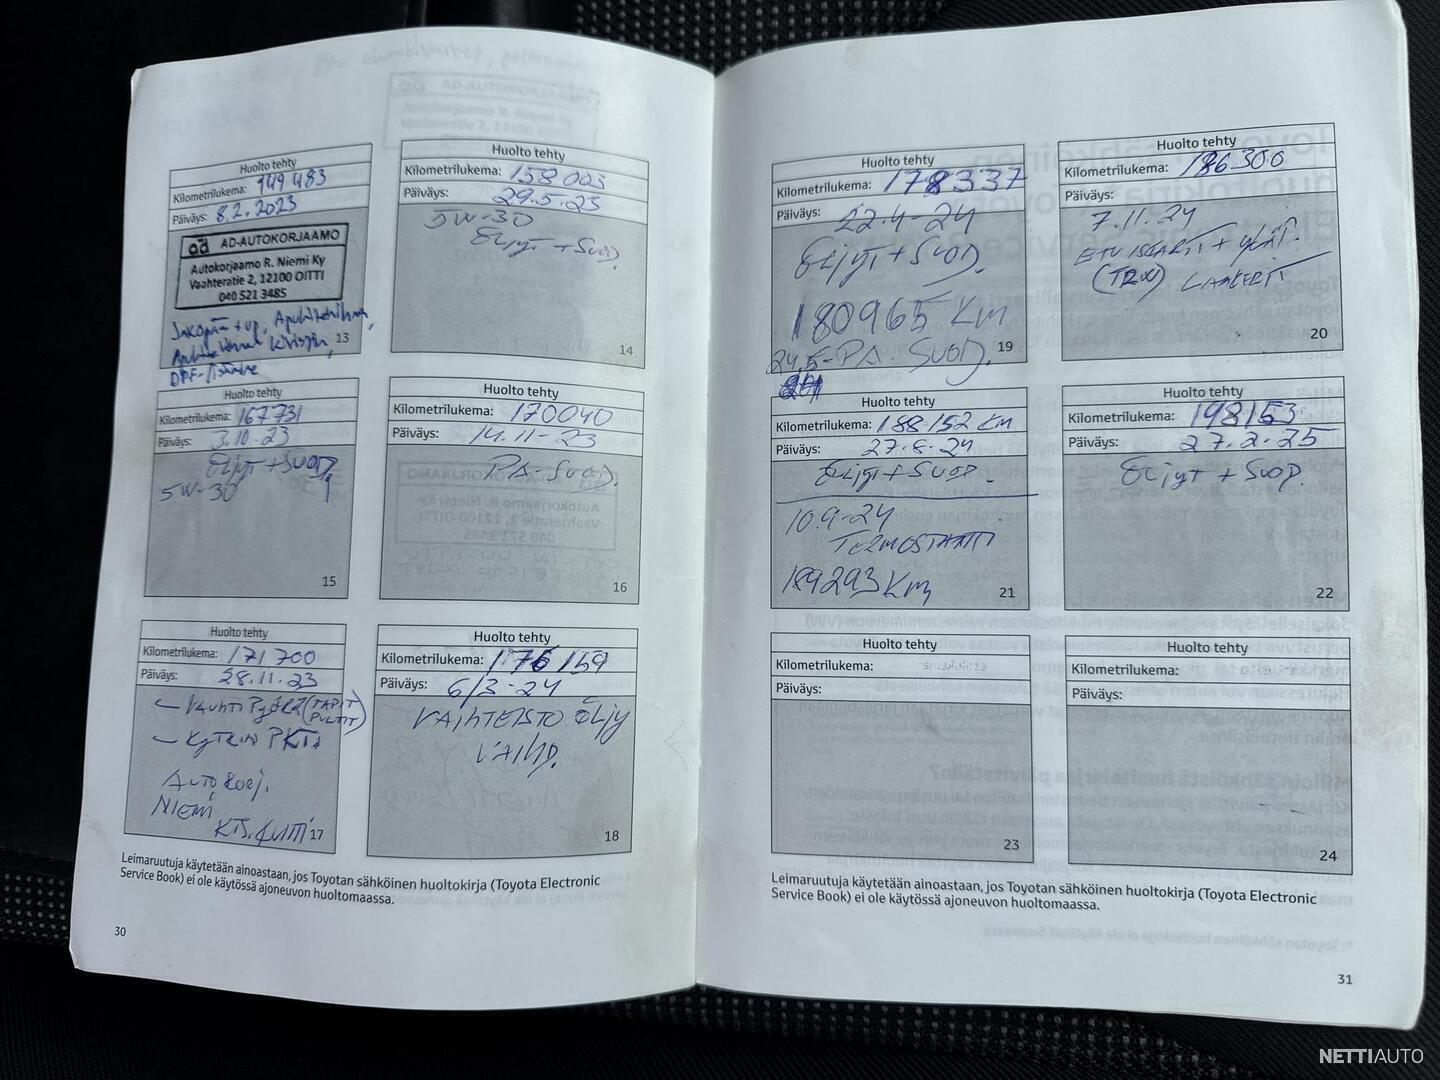 Huolto tehty
Kilometrilukema: 149 483
Päiväys: 8.2.2023
ad AD-AUTOKORJAAMO
Autokorjaamo R. Niemi Ky
Vaahteratie 2, 12100 OITTI
040 521 3485
Jakopää + vp, Apulaitehihna,
kiristin,
DPF-
13
Huolto tehty
Kilometrilukema: 158 003
Päiväys: 29.5.23
5W-30
Öljyt + Suod.
14
Huolto tehty
Kilometrilukema: 167731
Päiväys: 3.10.23
Öljyt + Suod.
5W-30
15
Huolto tehty
Kilometrilukema: 170040
Päiväys: 14.11-23
PA-Suod.
16
Huolto tehty
Kilometrilukema: 171 700
Päiväys: 28.11.23
- Vauhti Pyörä (TAPIT
PULTIT)
- Kytkin PKT
Autokorj.
NIEMI
KTS.
17
Huolto tehty
Kilometrilukema: 176 159
Päiväys: 6/3-24
VAIHTEISTO ÖLJY
VAIHD.
18
Leimaruutuja käytetään ainoastaan, jos Toyotan sähköinen huoltokirja (Toyota Electronic
Service Book) ei ole käytössä ajoneuvon huoltomaassa.
30
Huolto tehty
Kilometrilukema: 178337
Päiväys: 22.4-24
Öljyt + Suod.
180965 Km
24.5-PA. Suod.
19
Huolto tehty
Kilometrilukema: 186.300
Päiväys:
7.11.24
ETU ISKARIT +
(TRW) LAAKERIT
20
Huolto tehty
Kilometrilukema: 188152 Km
Päiväys: 27.8-24
Öljyt + Suod.
10.9-24
TERMOSTAATTI
189293 Km
21
Huolto tehty
Kilometrilukema: 198153
Päiväys: 27.2.25
Öljyt + Suod.
22
Huolto tehty
Kilometrilukema:
Päiväys:
23
Huolto tehty
Kilometrilukema:
Päiväys:
24
Leimaruutuja käytetään ainoastaan, jos Toyotan sähköinen huoltokirja (Toyota Electronic
Service Book) ei ole käytössä ajoneuvon huoltomaassa.
31
NETTIAUTO